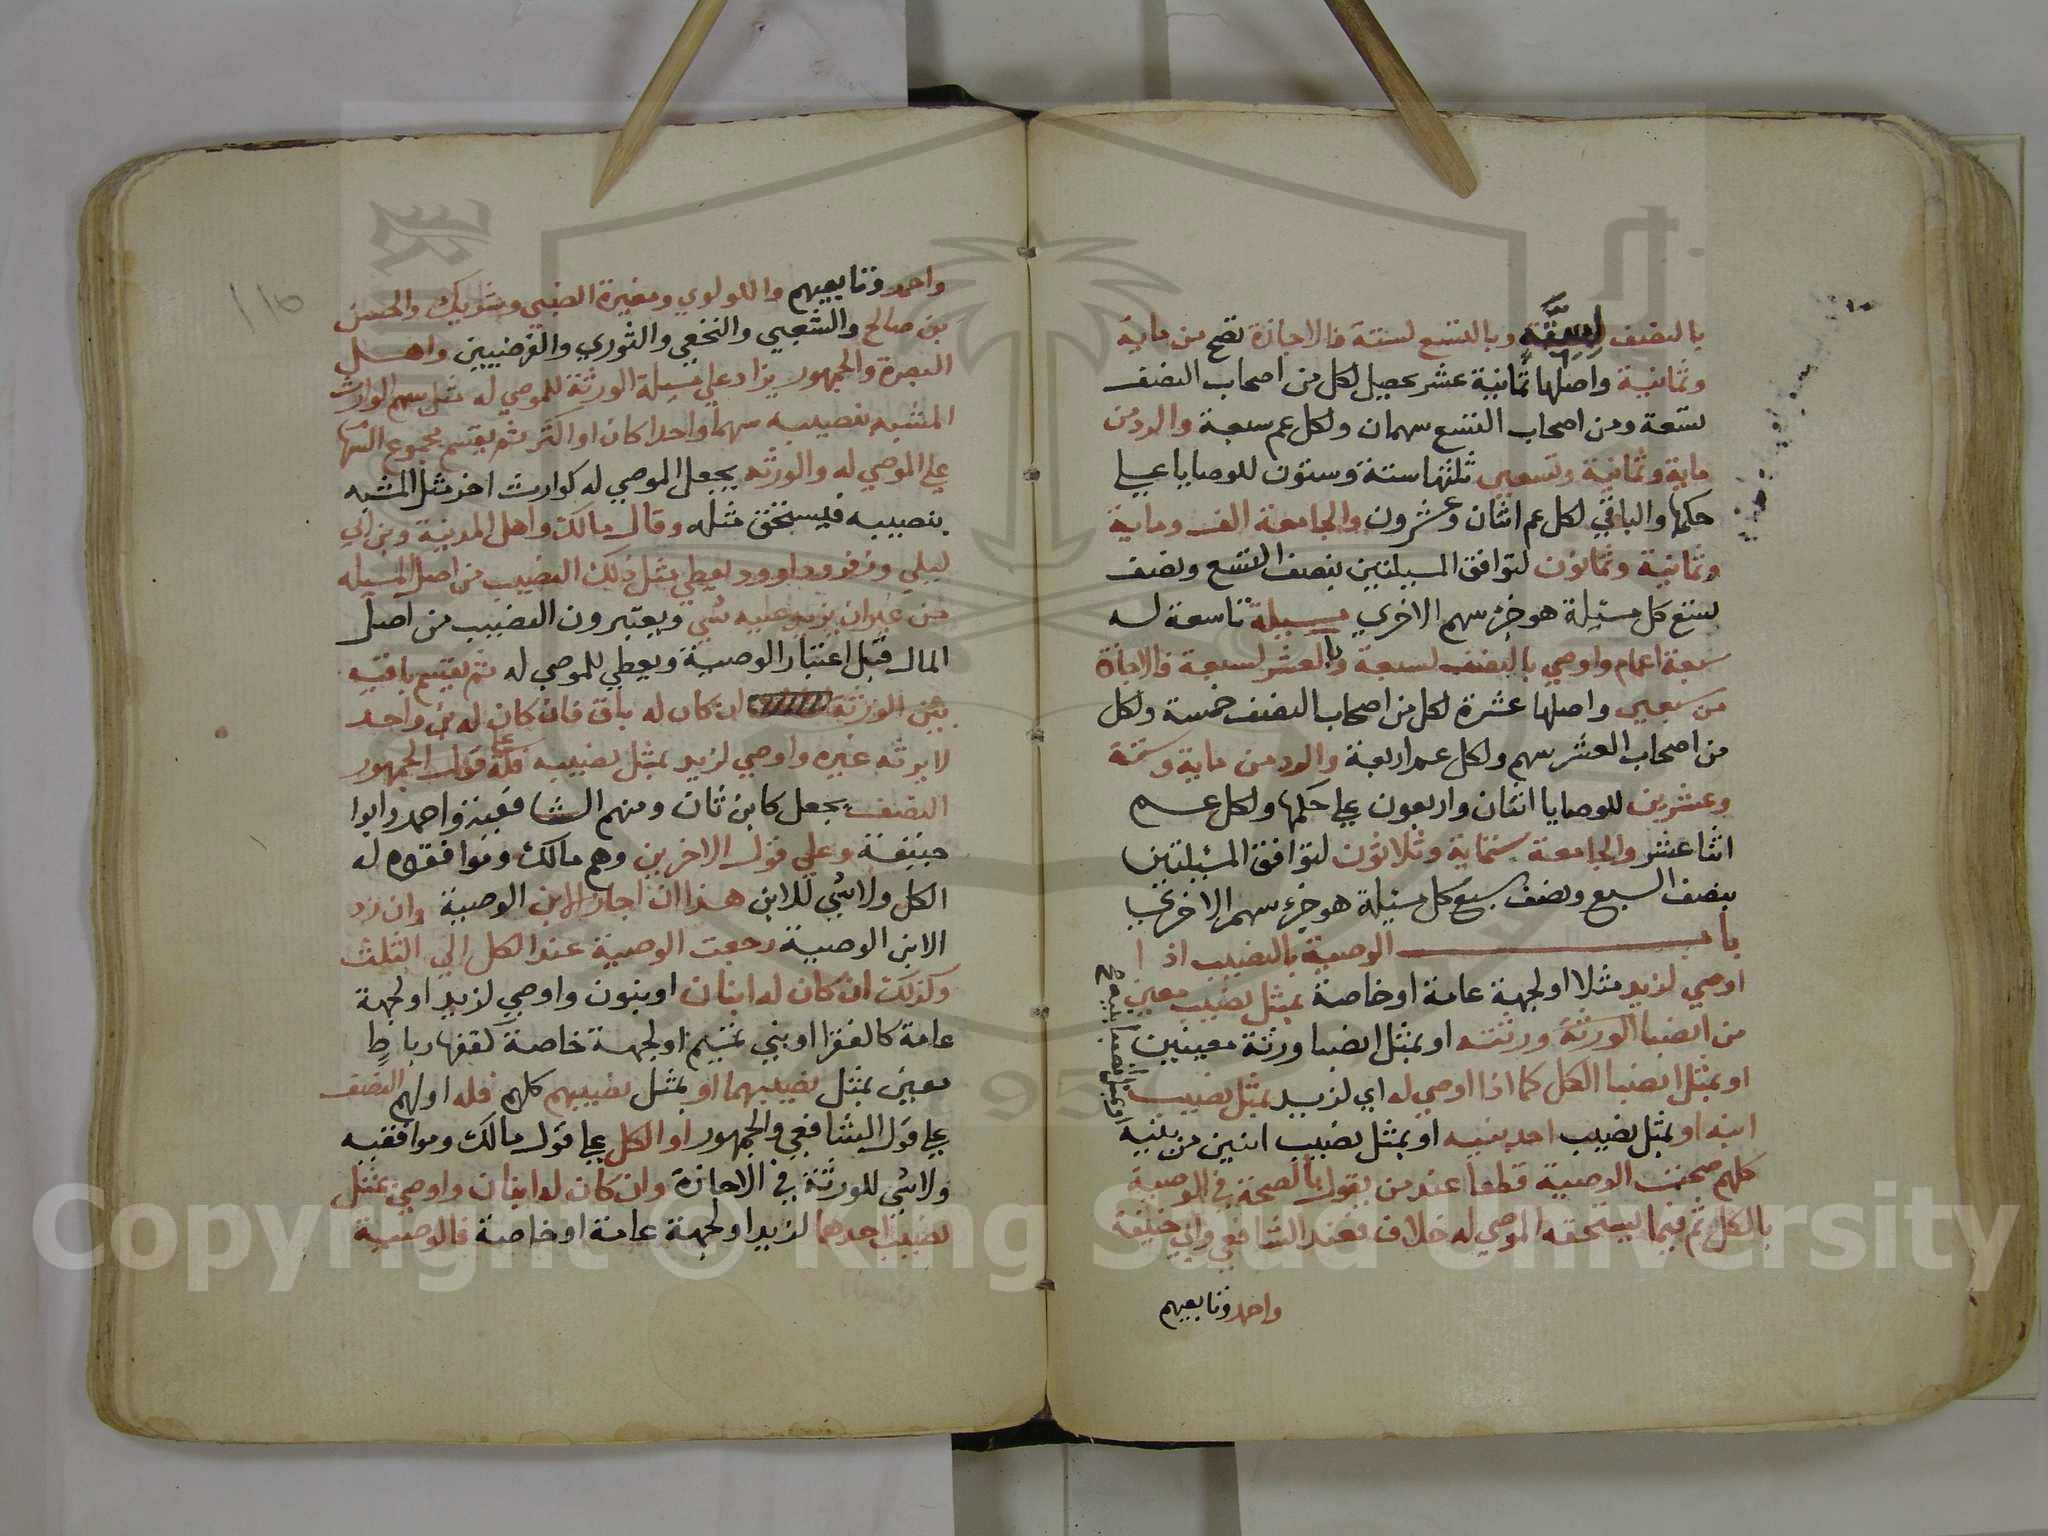 بالنصف لستة وبالتسع لستة فالاجازة تصح من ماية
وثمانية واصلها ثمانية عشر يحصل لكل من اصحاب النصف
تسعة ومن اصحاب التسع سهمان ولكل عم سبعة والرد من
ماية وثمانية وتسعين ثلثها ستة وستون للوصايا علي
حكمها والباقي لكل عم اثنان وعشرون والجامعة الف وماية
وثمانية وثمانون لتوافق المسيلتين بنصف التسع ونصف
تسع كل مسئلة هو جزء سهم الاخري مسيلة تاسعة له
سبعة اعمام واوصي بالنصف لسبعة وبالعشر لسبعة فالاجازة
من سبعين واصلها عشرة لكل من اصحاب النصف خمسة ولكل
من اصحاب العشر سهم ولكل عم اربعة والرد من ماية وستة
وعشرين للوصايا اثنان واربعون علي حكمها ولكل عم
اثنا عشر والجامعة ستماية وثلاثون لتوافق المسئلتين
بنصف السبع ونصف سبع كل مسئلة هو جزء سهم الاخري
باب الوصية بالنصيب اذا
اوصي لزيد مثلا او لجهة عامة او خاصة بمثل نصيب معين
من انصبا الورثة ورثته او بمثل انصبا ورثة معينين
او بمثل انصبا الكل كما اذا اوصي له اي لزيد بمثل نصيب
ابنه او بمثل نصيب احد بنيه او بمثل نصيب اثنين من بنيه
كلهم صحت الوصية قطعا عند من يقول بالصحة في الوصية
بالكل ثم فيما يستحقه الموصي له خلاف فعند الشافعي وابي حنيفة
واحمد وتابعيهم
واحمد وتابعيهم واللولوي ومغيرة الضبي وشريك والحسن
بن صالح والشعبي والنخعي والثوري والفرضيين واهل
البصرة والجمهور يزاد علي مسيلة الورثة للموصي له مثل سهم الوارث
المشبه بنصيبه سهما واحدا كان او اكثر ثم يقسم مجموع السهام
علي الموصي له والورثة يجعل الموصي له كوارث اخر مثل المشبه
بنصيبه فيستحق مثله وقال مالك واهل المدينة وبن ابي
ليلي وزفر وداوود يعطي مثل ذلك النصيب من اصل المسيله
من غير ان يزيد عليه شي ويعتبرون النصيب من اصل
المال قبل اعتبار الوصية ويعطي للموصي له ثم يقسم باقيه
بين الورثة ان كان له باق فان كان له بن واحد
لا يرثه غيره واوصي لزيد بمثل نصيبه فله علي قول الجمهور
النصف يجعل كابن ثان ومنهم الشافعية واحمد وابوا
حنيفة وعلي قول الاخرين وهم مالك وموافقوه له
الكل ولا شي للابن هذا ان اجاز الابن الوصية وان رد
الابن الوصية رجعت الوصية عند الكل الي الثلث
وكذلك ان كان له ابنان او بنون واوصي لزيد او لجهة
عامة كالفقرا او بني تميم او لجهة خاصة كفقرا رباط
معين بمثل نصيبهما او بمثل نصيبهم كلهم فله او لهم النصف
علي قول الشافعي والجمهور او الكل علي قول مالك وموافقيه
ولا شي للورثة في الاجازة وان كان له ابنان واوصي بمثل
نصيب احدهما لزيد او لجهة عامة او خاصة فالوصية
Copyright © King Saud University